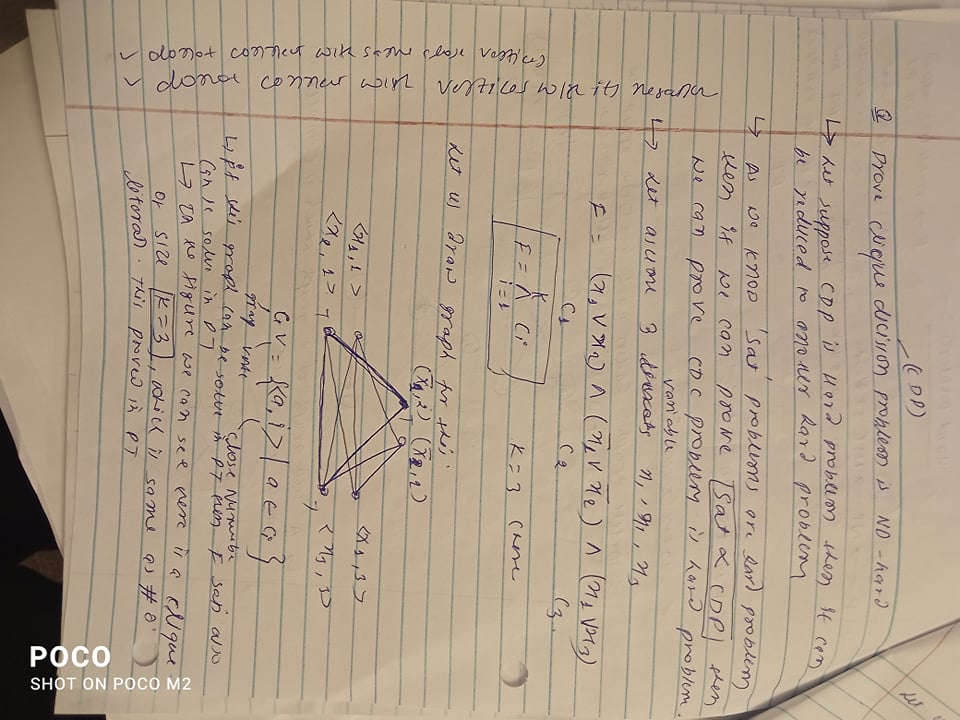 (CDP)
Q Prove clique decision problem is NP-hard
↳ Let suppose CDP is Hard problem then it can
be reduced to another hard problem
↳ As we know 'Sat' problems are hard problem
then if we can prove Sat ∝ CDP then
we can prove CDC problem is hard problem.
variable
↳ Let assume 3 x₁, x₂, x₃
F = (x₁ ∨ x₂) ∧ (x̄₁ ∨ x̄₂) ∧ (x₁ ∨ x₃)
C₁ C₂ C₃
K
F = ∧ Ci
i=1
K=3 clause
Let us draw graph for this.
(x̄₁,2) (x̄₂,2)
<x₁,1> <x₁,3>
<x₂,1> <x₃,3>
G V = {<a,i> | a ∈ Ci}
graph
close Number
↳ If this graph can be solve in PT then F sat also
can be solve in PT
↳ In the figure we can see here is a clique
of size K=3, which is same as # of
literal. This proved in PT
✓ donot connect with same close vertices
✓ donot connect with vertices with its negation
POCO
SHOT ON POCO M2
Let